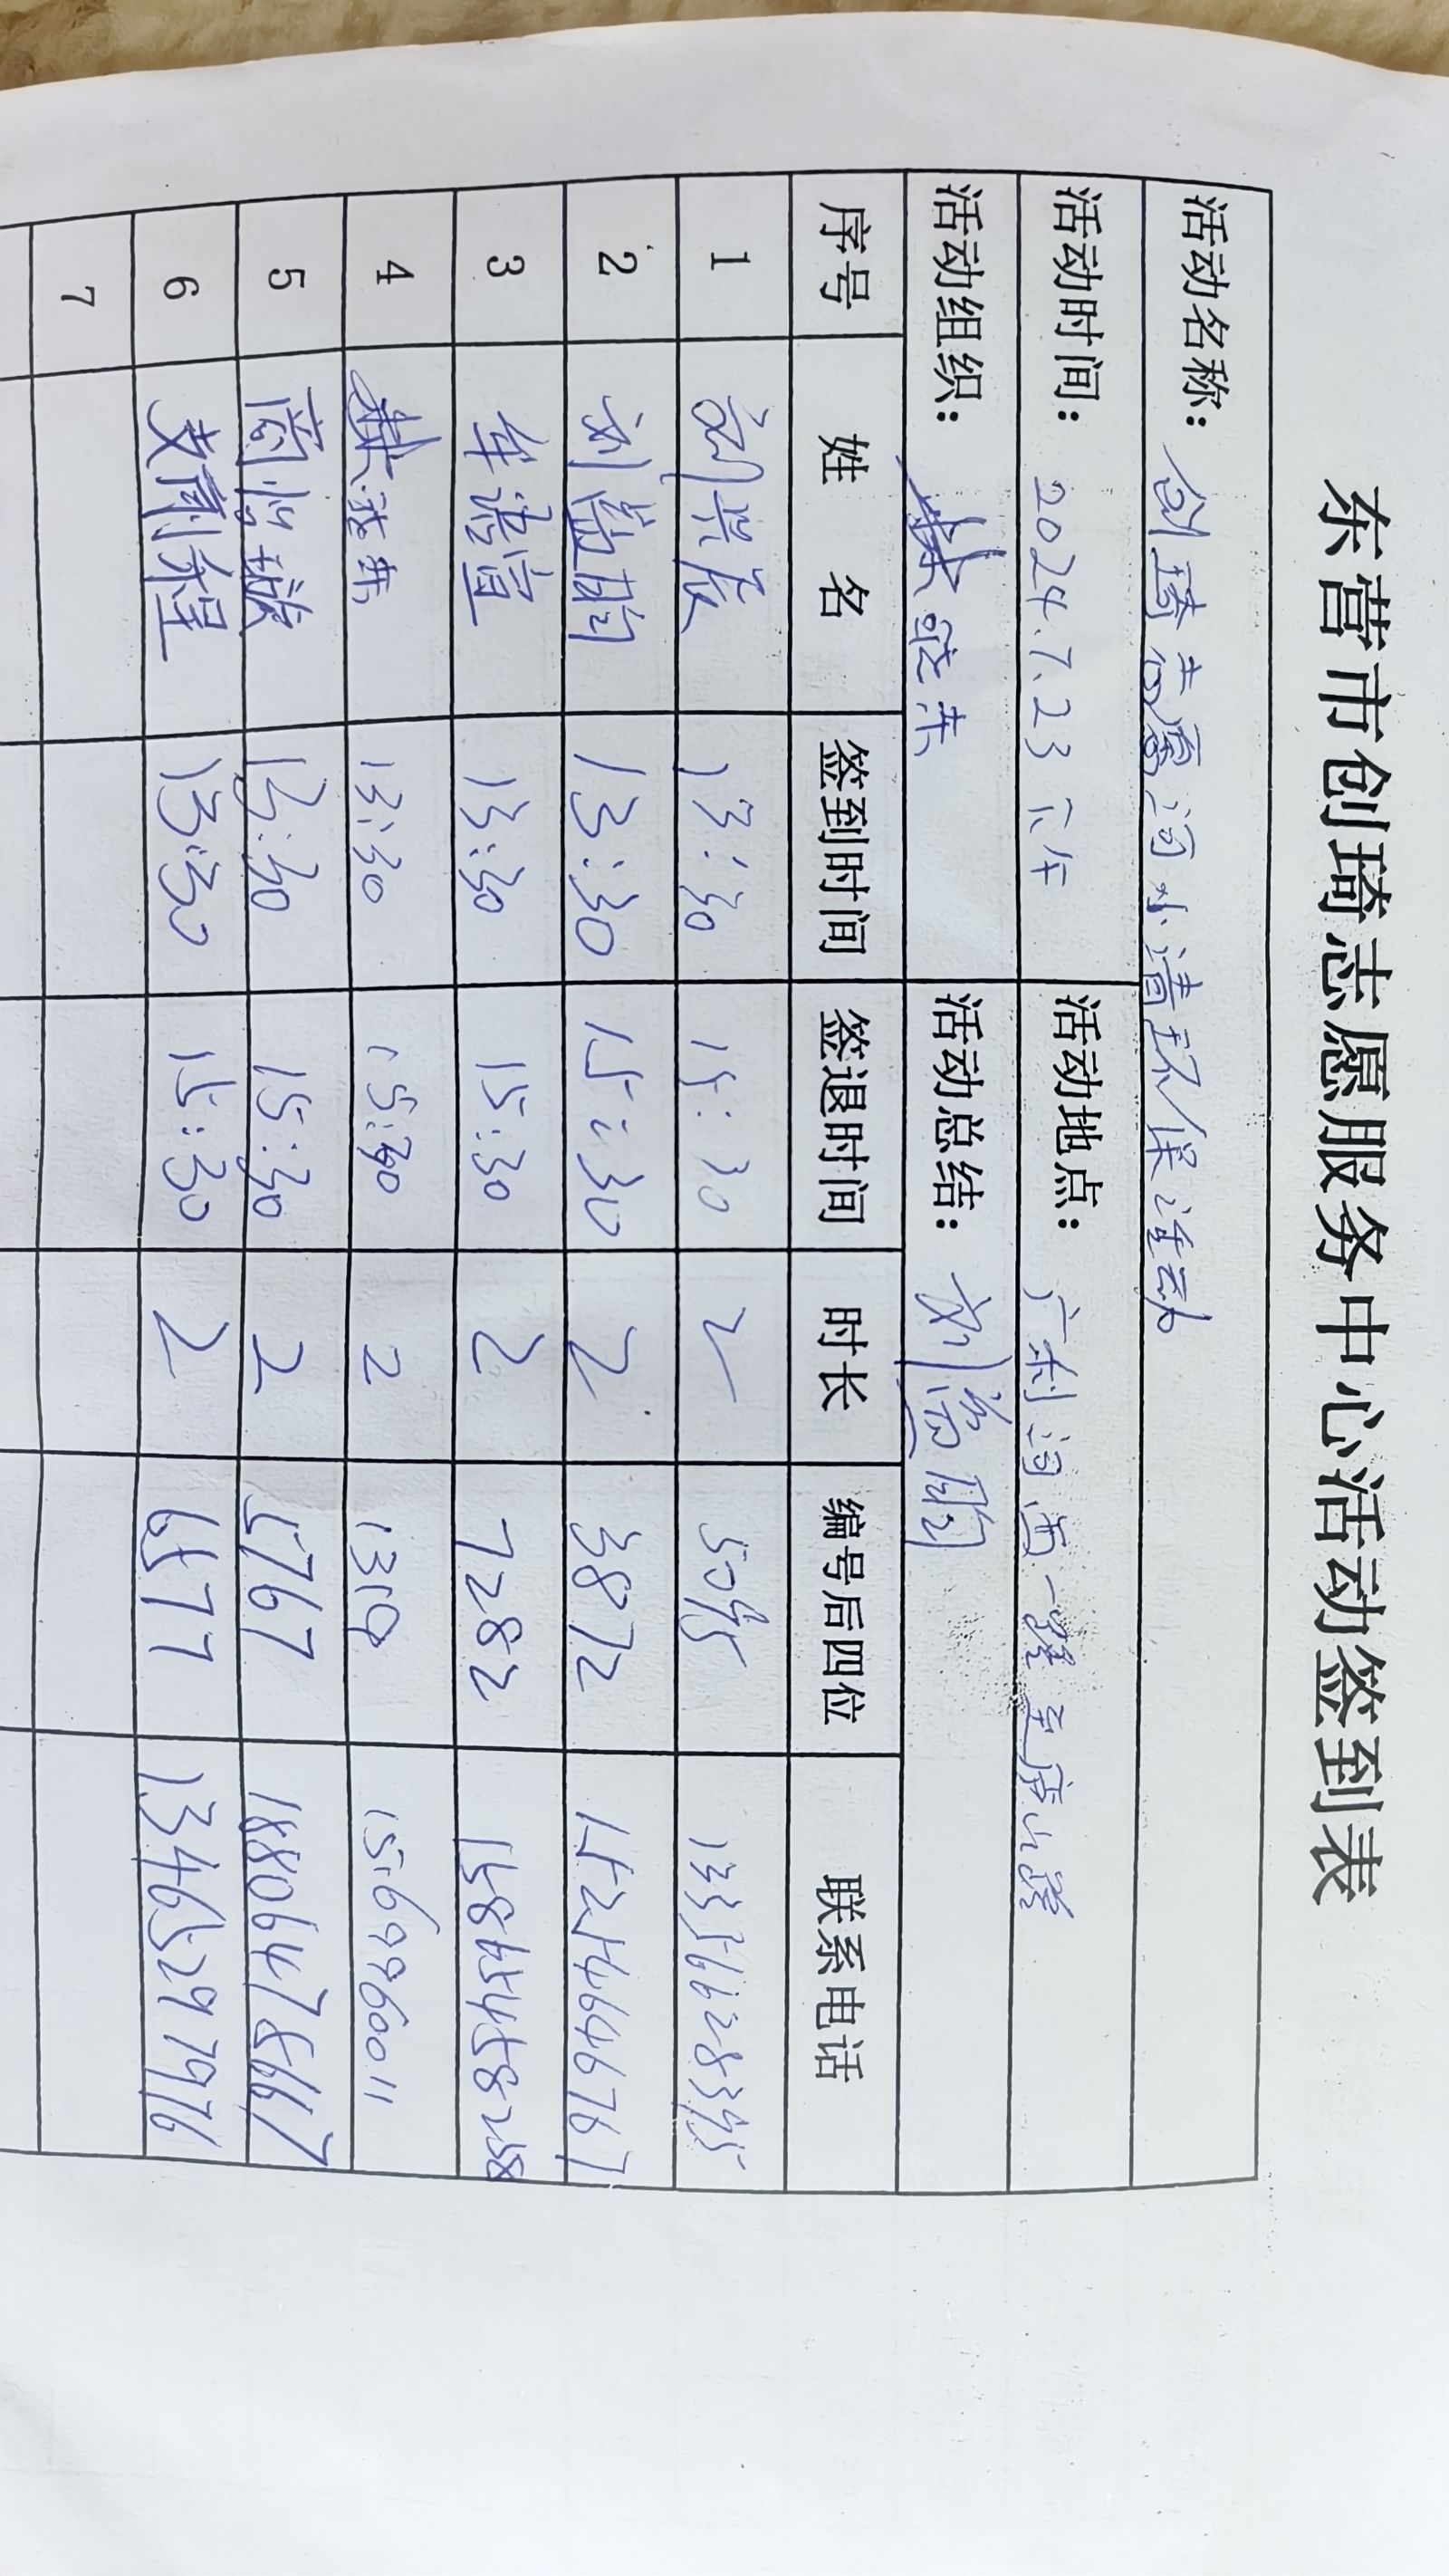 东营市创琦志愿服务中心活动签到表
活动名称: 创琦志愿河小清环保活动
活动时间: 2024.7.23 下午 活动地点: 广利河西一路至庐山路
活动组织: 活动总结:
序号 姓 名 签到时间 签退时间 时长 编号后四位 联系电话
1 13:30 15:30 2
2 13:30 15:30 2 3872 15214646767
3 车语宣 13:30 15:30 2 7282 15845458258
4 13:30 15:30 2 15699960011
5 13:30 15:30 2 5767 18806478667
6 13:30 15:30 2 6577 13465297976
7